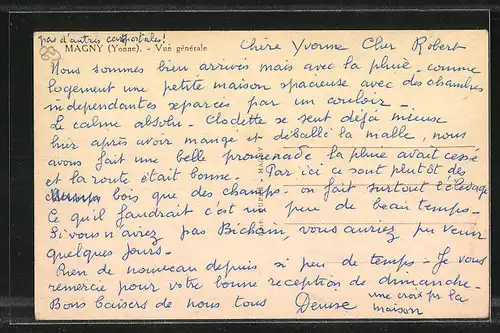 pas d'autres cartpostales!
MAGNY (Yonne). - Vue générale
89
Chère Yvonne Cher Robert
Nous sommes bien arrivés mais avec la pluie, comme
logement une petite maison spacieuse avec des chambres
independantes separés par un couloir -
Le calme absolu - Clodette se sent déjà mieux
hier après avoir mangé et déballé la malle, nous
avons fait une belle promenade la pluie avait cessé
et la route était bonne - Par ici ce sont plutôt des
bois que des champs - on fait surtout l'élevage
Ce qu'il faudrait c'est un peu de beau temps -
Si vous n'aviez pas Bichain, vous auriez pu venir
quelques jours -
Rien de nouveau depuis si peu de temps - Je vous
remercie pour votre bonne reception de dimanche -
Bons baisers de nous tous Denise
une croix pr la
maison
MAGNY